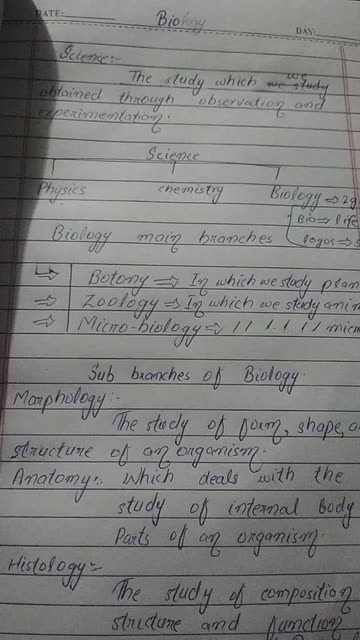 DATE:
Biology
DAY:
Science:-
The study which we study we
obtained through observation and
experimentation.
Science
Physics chemistry Biology ⇒
Bio ⇒ life
Biology main branches logos ⇒
↳ Botony ⇒ In which we study plan
⇒ Zoology ⇒ In which we study anim
⇒ Micro-biology ⇒ 11 11 11 micr
Sub branches of Biology.
Morphology:-
The study of form, shape, a
structure of an organism.
Anatomy:- Which deals with the
study of internal body
Parts of an organism.
Histology:-
The study of composition
structure and function